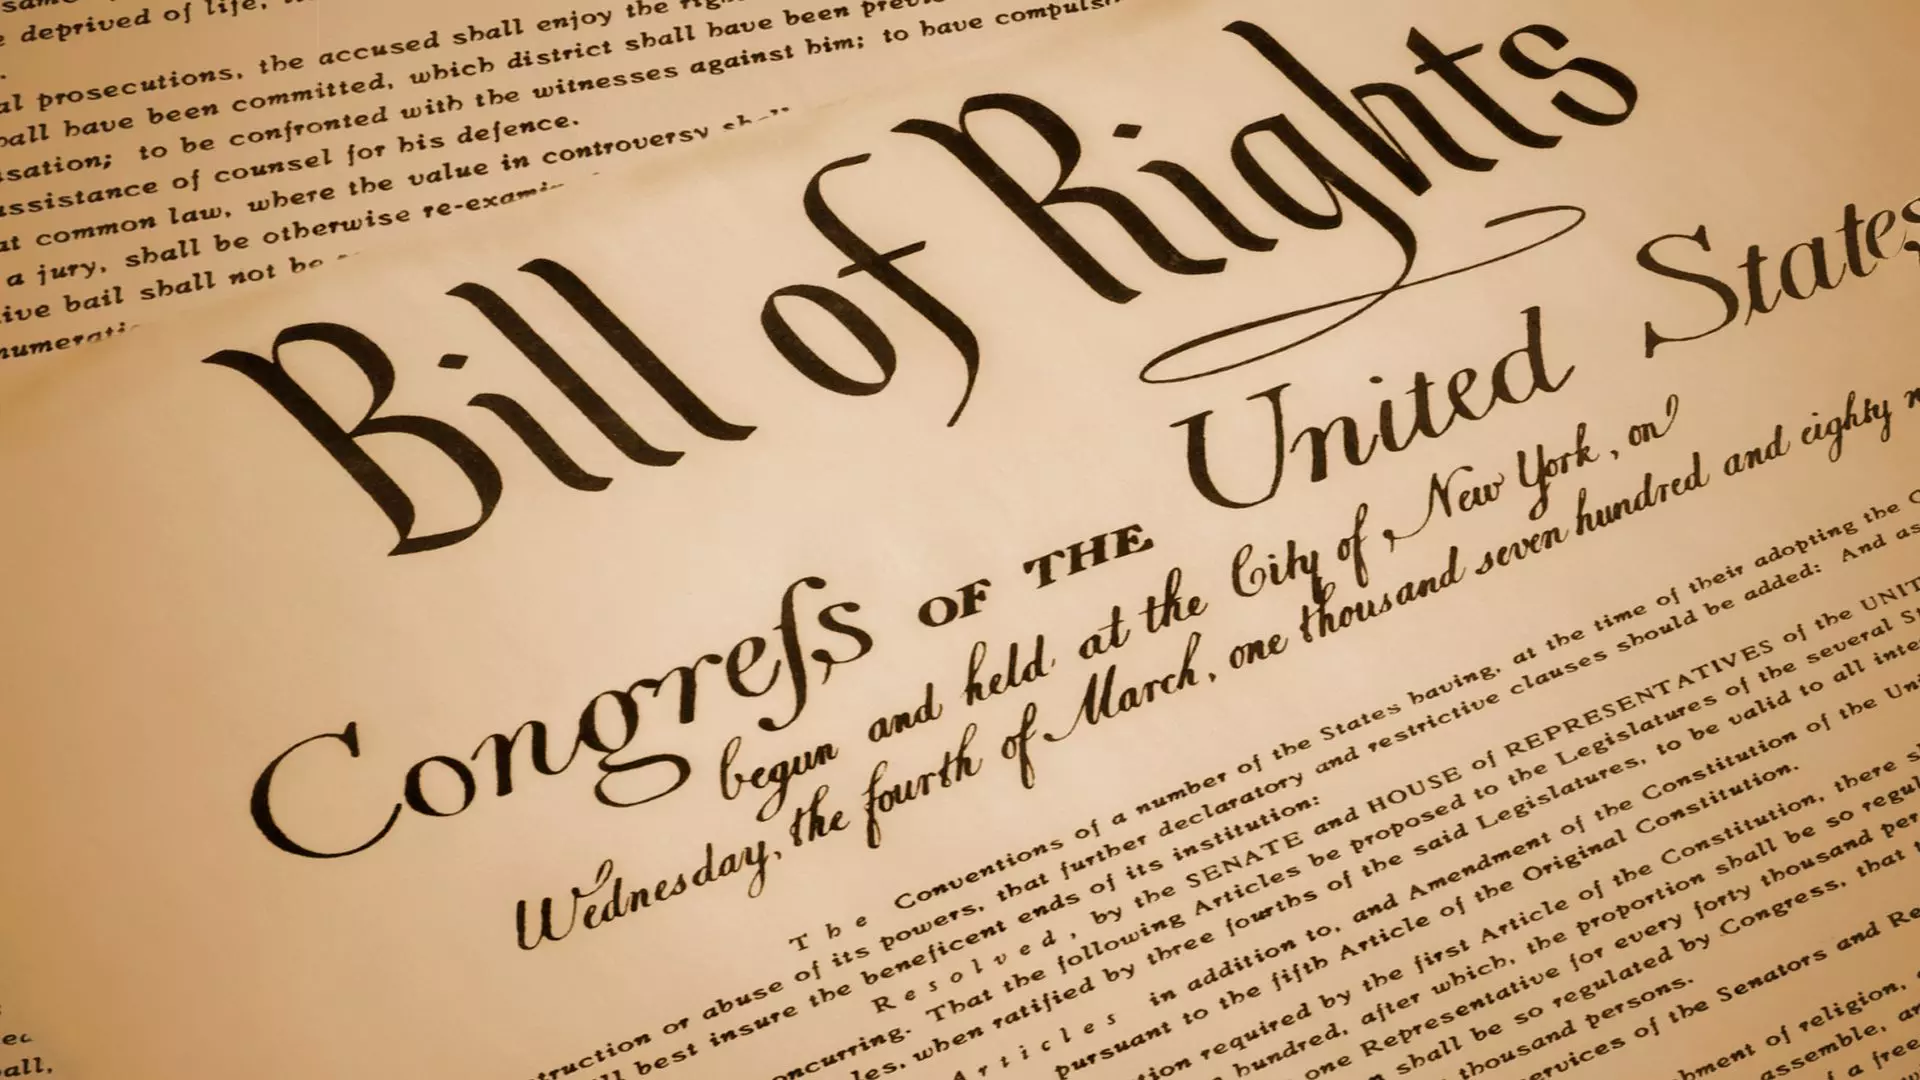 same
deprived of life,
al prosecutions, the accused shall enjoy the
have been committed, which district shall have been
sation; to be confronted with the witnesses against him; to have
assistance of counsel for his defence.
at common law, where the value in controversy
a jury, shall be otherwise
ive bail shall not be
Bill of Rights
Congreſs OF THE United States
begun and held at the City of New York, on
Wednesday, the fourth of March, one thousand seven hundred and eighty
The Conventions of a number of the States having, at the time of their adopting the
truction or abuse of its powers, that further declaratory and restrictive clauses should be added: And as
best insure the beneficent ends of its institution:
Resolved, by the SENATE and HOUSE of REPRESENTATIVES of the UNIT
oncurring. That the following Articles be proposed to the Legislatures of the several
les, when ratified by three fourths of the said Legislatures, to be valid to all inte
Articles in addition to, and Amendment of the Constitution of the Uni
pursuant to the fifth Article of the Original Constitution.
tion required by the first Article of the Constitution, there
hundred, after which, the proportion shall be so regul
one Representative for every forty thousand per
shall be so regulated by Congress, that
thousand persons.
ervices of the Senators and Re
hment of religion,
assemble, an
of a free